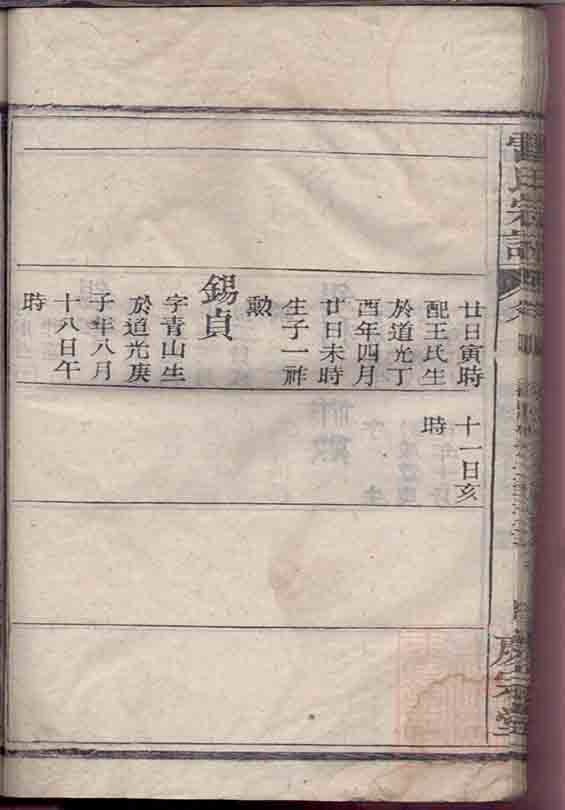 曹氏宗譜
卷
慶宗堂
廿日寅時
配王氏生
於道光丁
酉年四月
廿日未時
生子一祚
勲
錫貞
字青山生
於道光庚
子年八月
十八日午
時
十一日亥
時